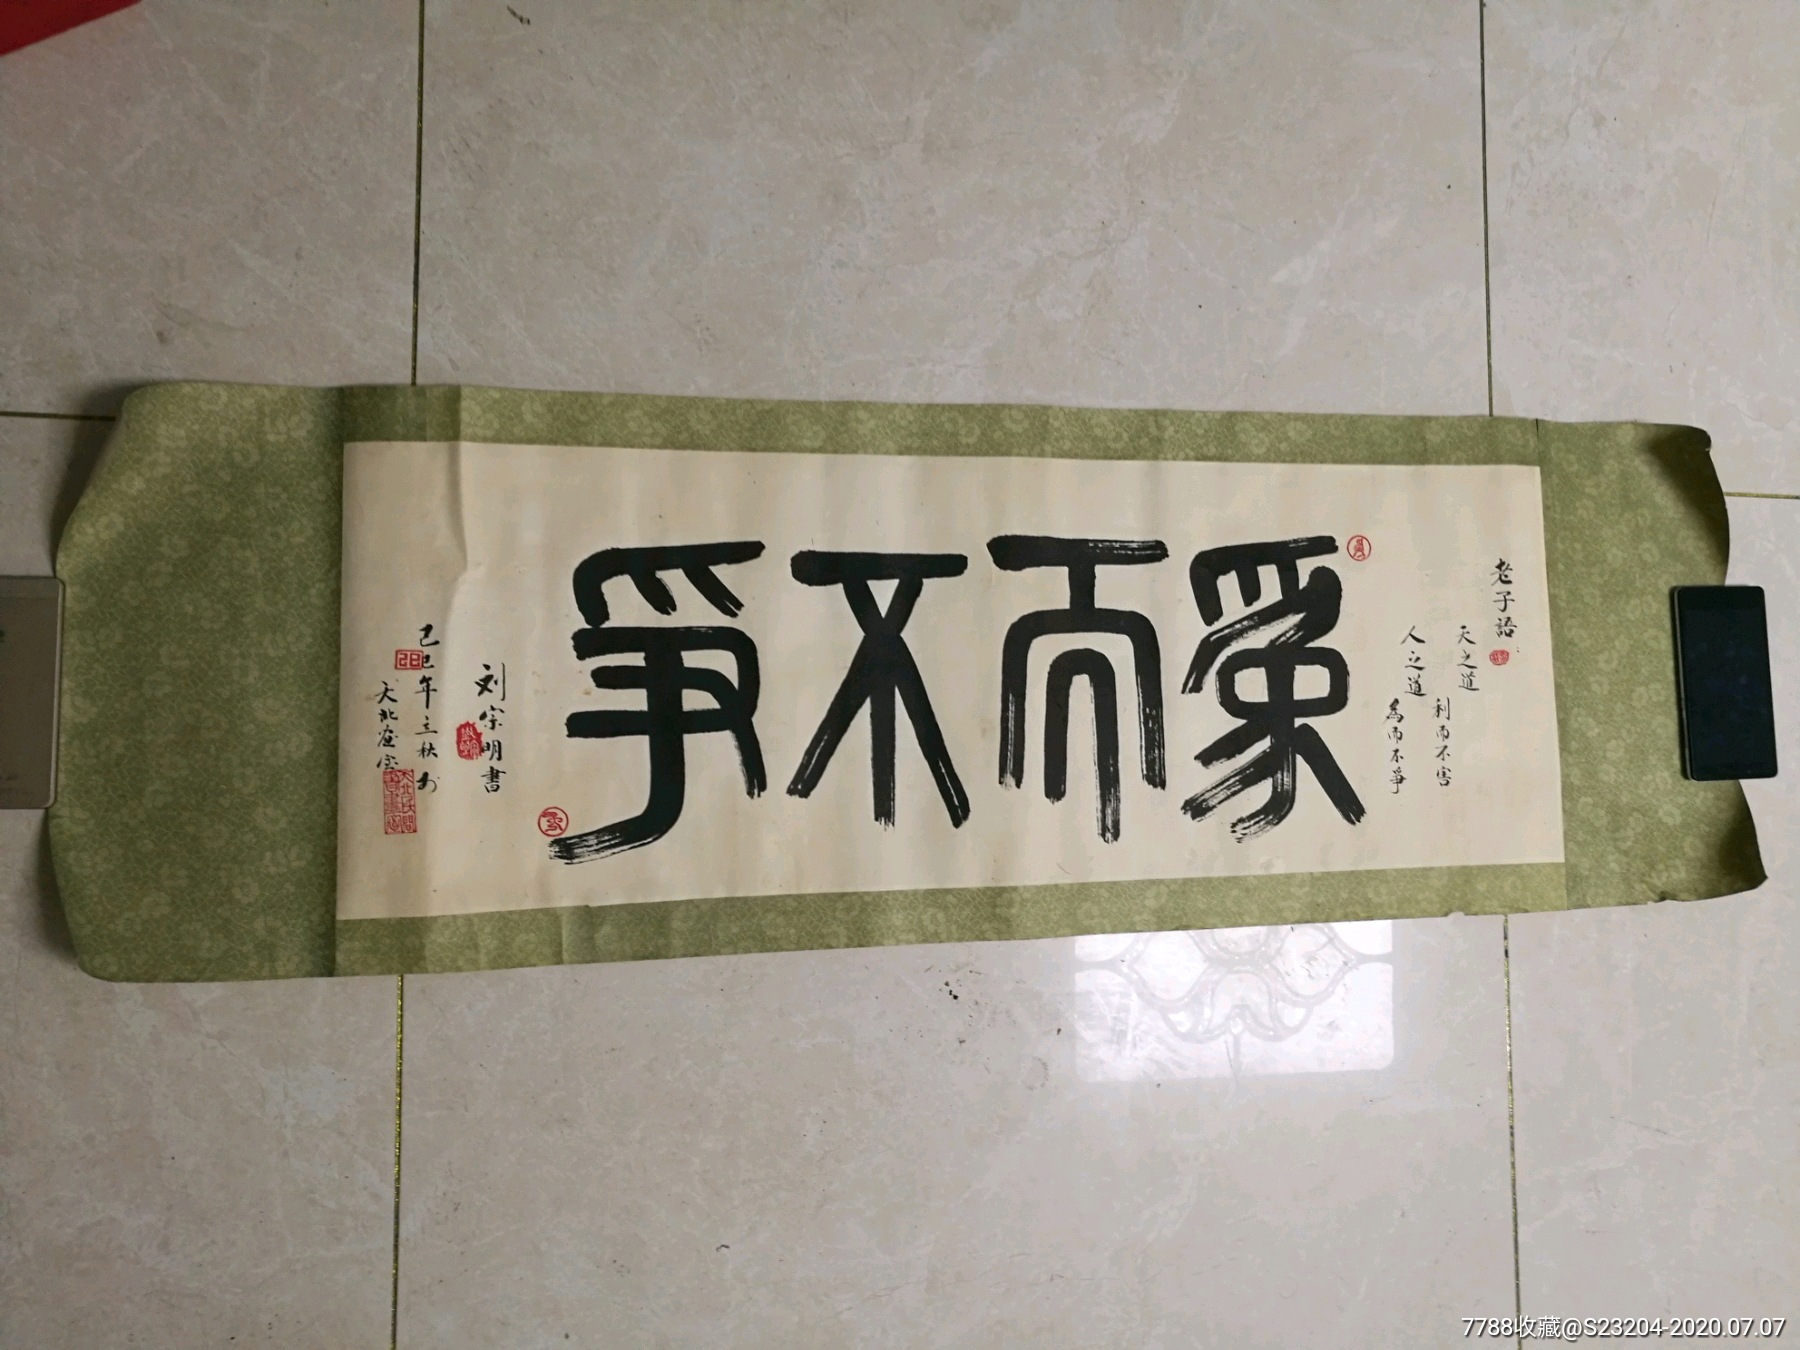 老子語
天之道
利而不害
人之道
為而不爭
為而不爭
刘宗明書
己巳年立秋于
天北畫室
7788收藏@S23204-2020.07.07